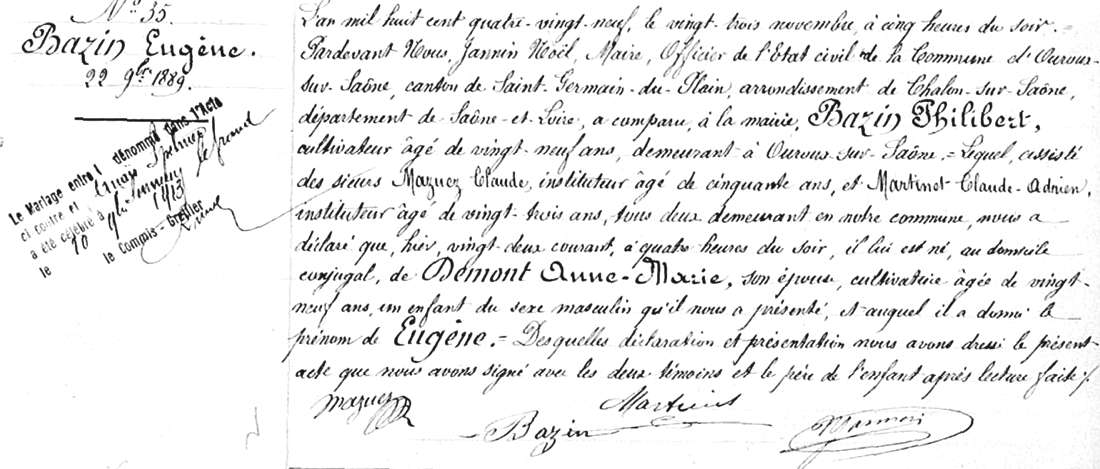 N° 35.
Bazin Eugène.
22 9bre 1889.
Le Mariage entre l dénommé dans l'Acte
ci contre et
a été célébré à
le 10 1913
le Commis-Greffier
L'an mil huit cent quatre-vingt-neuf, le vingt-trois novembre, à cinq heures du soir. =
Pardevant Nous, Jannin Noël, Maire, Officier de l'Etat civil de la Commune d'Ouroux-
sur-Saône, canton de Saint-Germain-du-Plain, arrondissement de Chalon-sur-Saône,
département de Saône-et-Loire, a comparu, à la mairie, Bazin Philibert,
cultivateur âgé de vingt-neuf ans, demeurant à Ouroux-sur-Saône. = Lequel, assisté
des sieurs Mazuez Claude, instituteur âgé de cinquante ans, et Martinet Claude-Adrien,
instituteur âgé de vingt-trois ans, tous deux demeurant en notre commune, nous a
déclaré que, hier, vingt-deux courant, à quatre heures du soir, il lui est né, au domicile
conjugal, de Démont Anne-Marie, son épouse, cultivatrice âgée de vingt-
neuf ans, un enfant du sexe masculin qu'il nous a présenté, et auquel il a donné le
prénom de Eugène. = Desquelles déclaration et présentation nous avons dressé le présent
acte que nous avons signé avec les deux témoins et le père de l'enfant après lecture faite ./.
Mazuez
Martinet
Bazin
Jannin